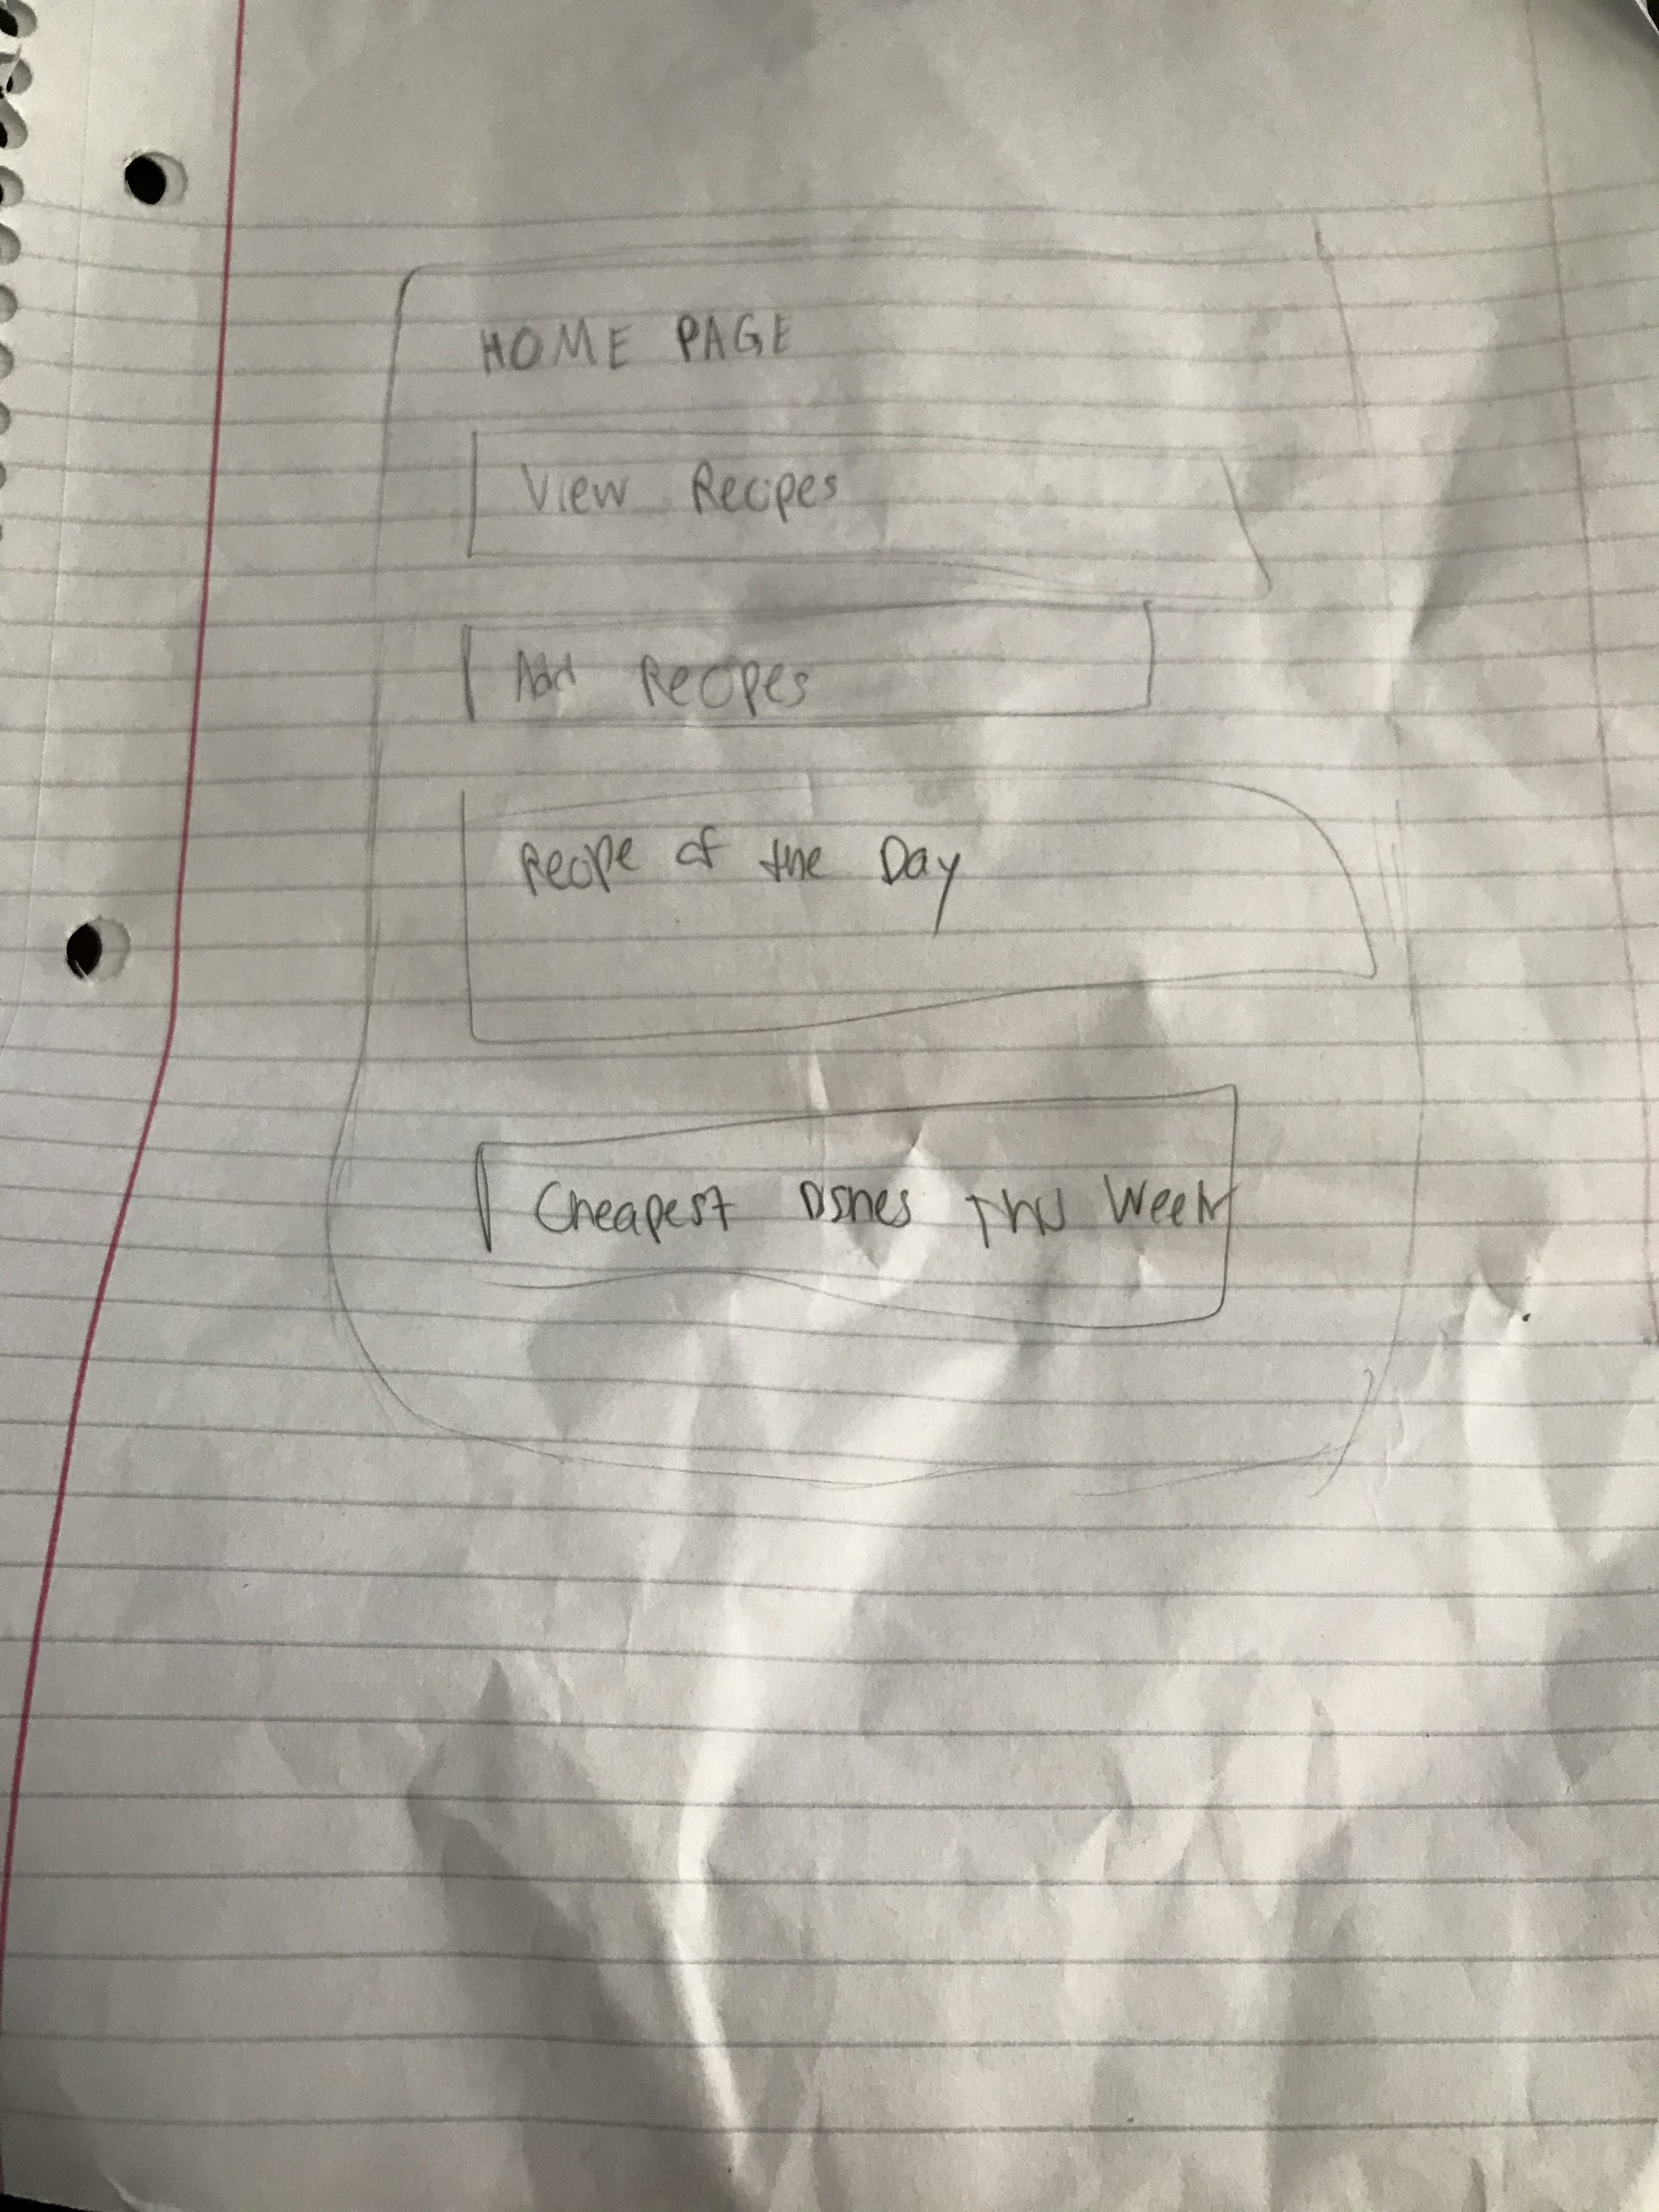 HOME PAGE
View Recipes
Add Recipes
Recipe of the Day
Cheapest Dishes This Week